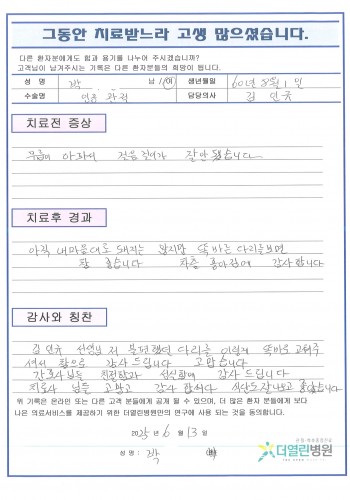 그동안 치료받느라 고생 많으셨습니다.
다른 환자분에게도 힘과 용기를 나누어 주시겠습니까?
고객님이 남겨주시는 기록은 다른 환자분들의 희망이 됩니다.
성 명 박 남 / 여 생년월일 60년 8월 1일
수술명 인공관절 담당의사 김 인규
치료전 증상
무릎이 아파서 걸음 걷기가 잘안됐습니다
치료후 경과
아직 내마음대로 돼지는 않지만 똑바른 다리를보면
참 좋습니다 차츰 좋아짐에 감사합니다
감사와 칭찬
김 인규 선생님 저 불편했던 다리를 이렇게 똑바로 고쳐주
셔서 참으로 감사드립니다 고맙습니다
간호사님들 친절함과 감사드립니다
치료사님들 고맙고 감사합니다 식단도 잘나오고 좋았습니다
위 기록은 온라인 또는 다른 고객 분들에게 공개 될 수 있으며, 더 많은 환자 분들에게 보다
나은 의료서비스를 제공하기 위한 더열린병원만의 연구에 사용 되는 것을 동의합니다.
2025년 6월 13일
성명 : 박
더열린병원